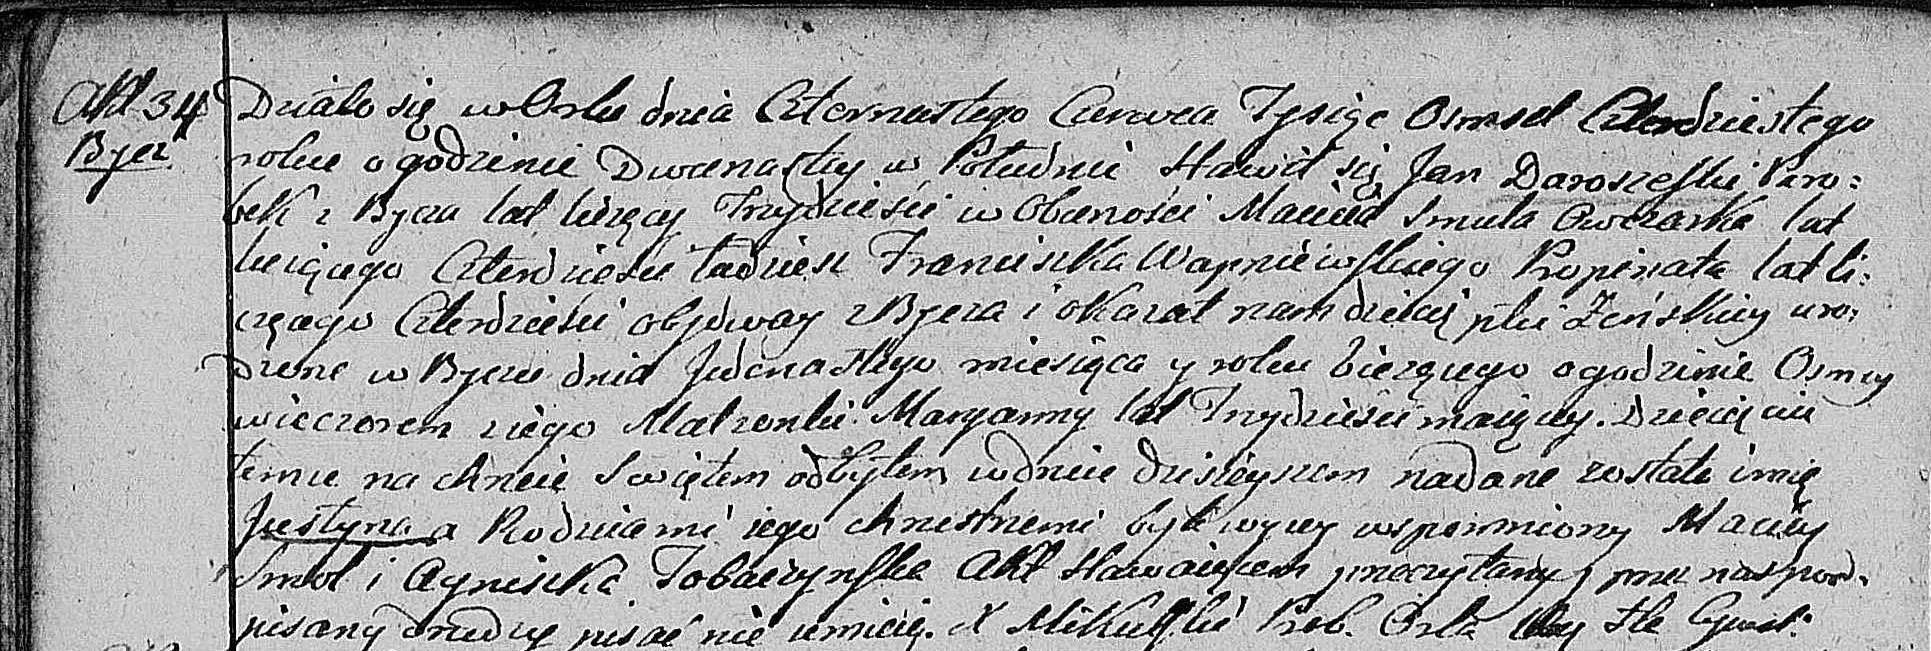 Akt 34 Działo się w Orlu dnia Czternastego Czerwca Tysiąc Osmset Czterdziestego
Byez roku o godzinie Dwunastey w Południe Stawił się Jan Daroszeski Paro=
bek z Byeza lat liczący Trzydzieści w Obecności Macieia Smula Owczarka lat
liczącego Czterdzieści tudziesz Franciszka Wapniewskiego Propinata lat li=
czącego Czterdzieści obydway z Byeza i okazał nam dziecię płci Zeńskiey uro=
dzone w Byezu dnia Jedenastego miesiąca y roku bieżącego o godzinie Osmey
wieczorem z iego Małzonki Maryanny lat Trzydzieści maiącey. Dziecięciu
temu na chrcie Swiętem odbytem w dniu dzisieyszem nadane zostało imię
Justyna a Rodzicami iego chrzestnemi byli wyzey wspomniony Maciey
Smol i Agniszka Tobaczynska Akt stawaiącem przeczytany przez nas pod=
pisany drudzy pisać nie umieią. X Mikulski Prob. Orla